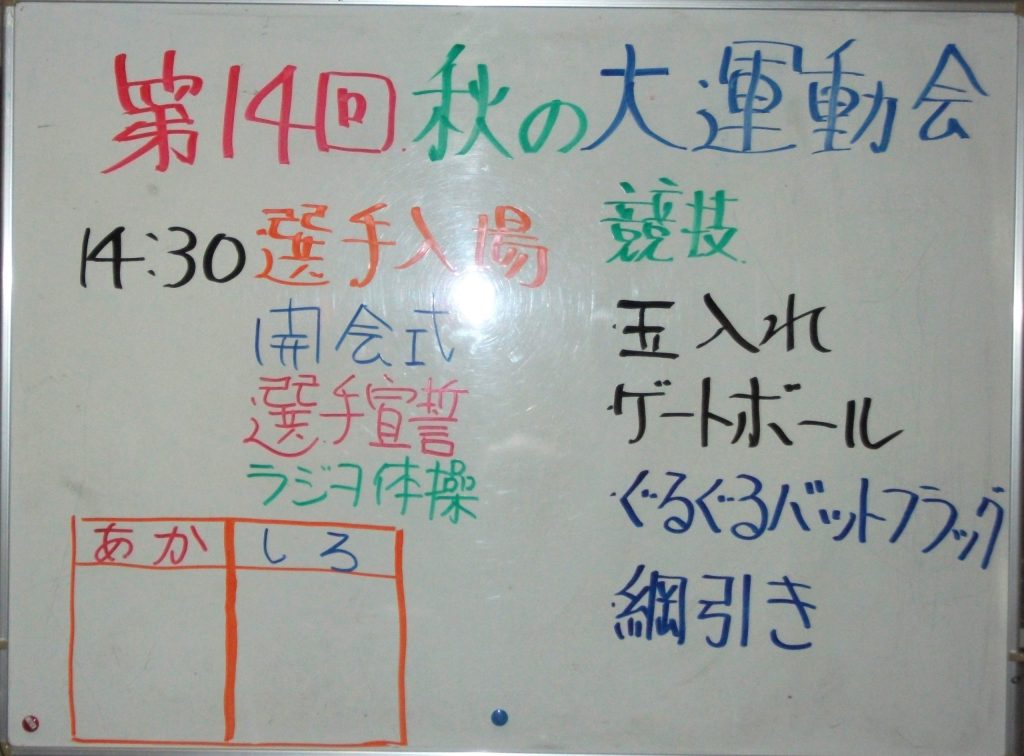 第14回 秋の大運動会
14:30 選手入場
開会式
選手宣誓
ラジオ体操
あか しろ
競技
玉入れ
ゲートボール
ぐるぐるバットフラッグ
綱引き